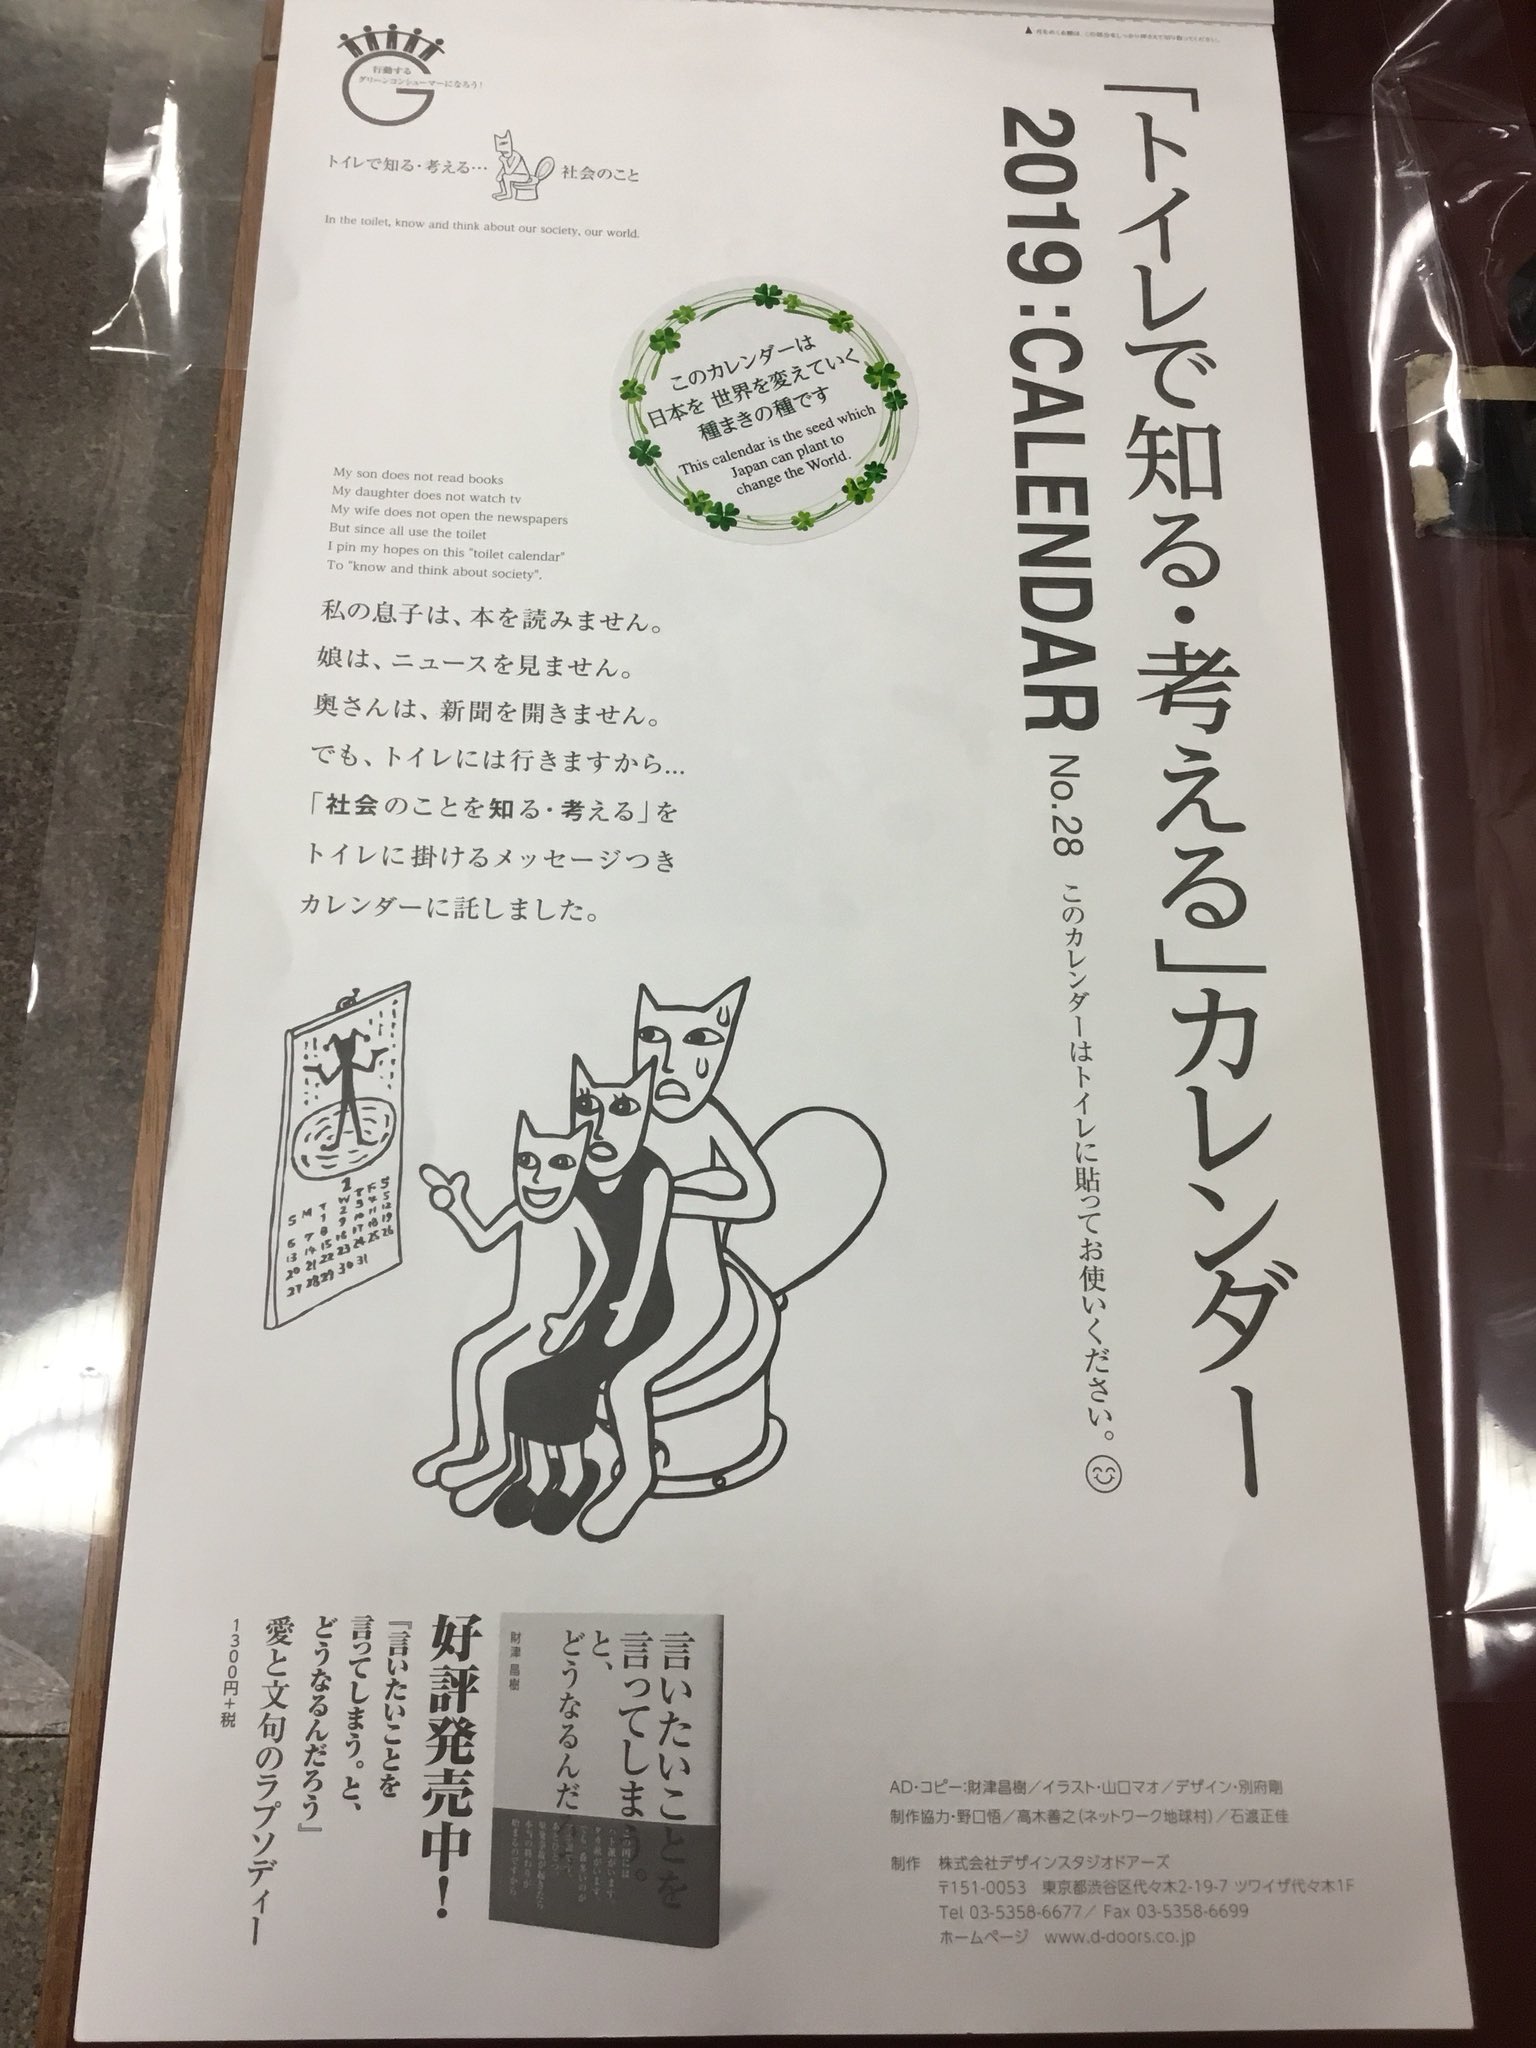 行動する
グリーンコンシューマーになろう!
トイレで知る・考える… 社会のこと
In the toilet, know and think about our society, our world.
「トイレで知る・考える」カレンダー
2019:CALENDAR No.28 このカレンダーはトイレに貼ってお使いください。
このカレンダーは
日本を 世界を変えていく
種まきの種です
This calendar is the seed which
Japan can plant to
change the World.
My son does not read books
My daughter does not watch tv
My wife does not open the newspapers
But since all use the toilet
I pin my hopes on this "toilet calendar"
To "know and think about society".
私の息子は、本を読みません。
娘は、ニュースを見ません。
奥さんは、新聞を開きません。
でも、トイレには行きますから…
「社会のことを知る・考える」を
トイレに掛けるメッセージつき
カレンダーに託しました。
S M T W T F S
1 2 3 4 5
6 7 8 9 10 11 12
13 14 15 16 17 18 19
20 21 22 23 24 25 26
27 28 29 30 31
言いたいことを
言ってしまう。
と、
どうなるんだ
財津昌樹
好評発売中!
『言いたいことを
言ってしまう。と、
どうなるんだろう』
愛と文句のラプソディー
1300円+税
AD・コピー:財津昌樹/イラスト・山口マオ/デザイン・別府剛
制作協力・野口悟/高木善之(ネットワーク地球村)/石渡正佳
制作 株式会社デザインスタジオドアーズ
〒151-0053 東京都渋谷区代々木2-19-7 ツワイザ代々木1F
Tel 03-5358-6677/ Fax 03-5358-6699
ホームページ www.d-doors.co.jp